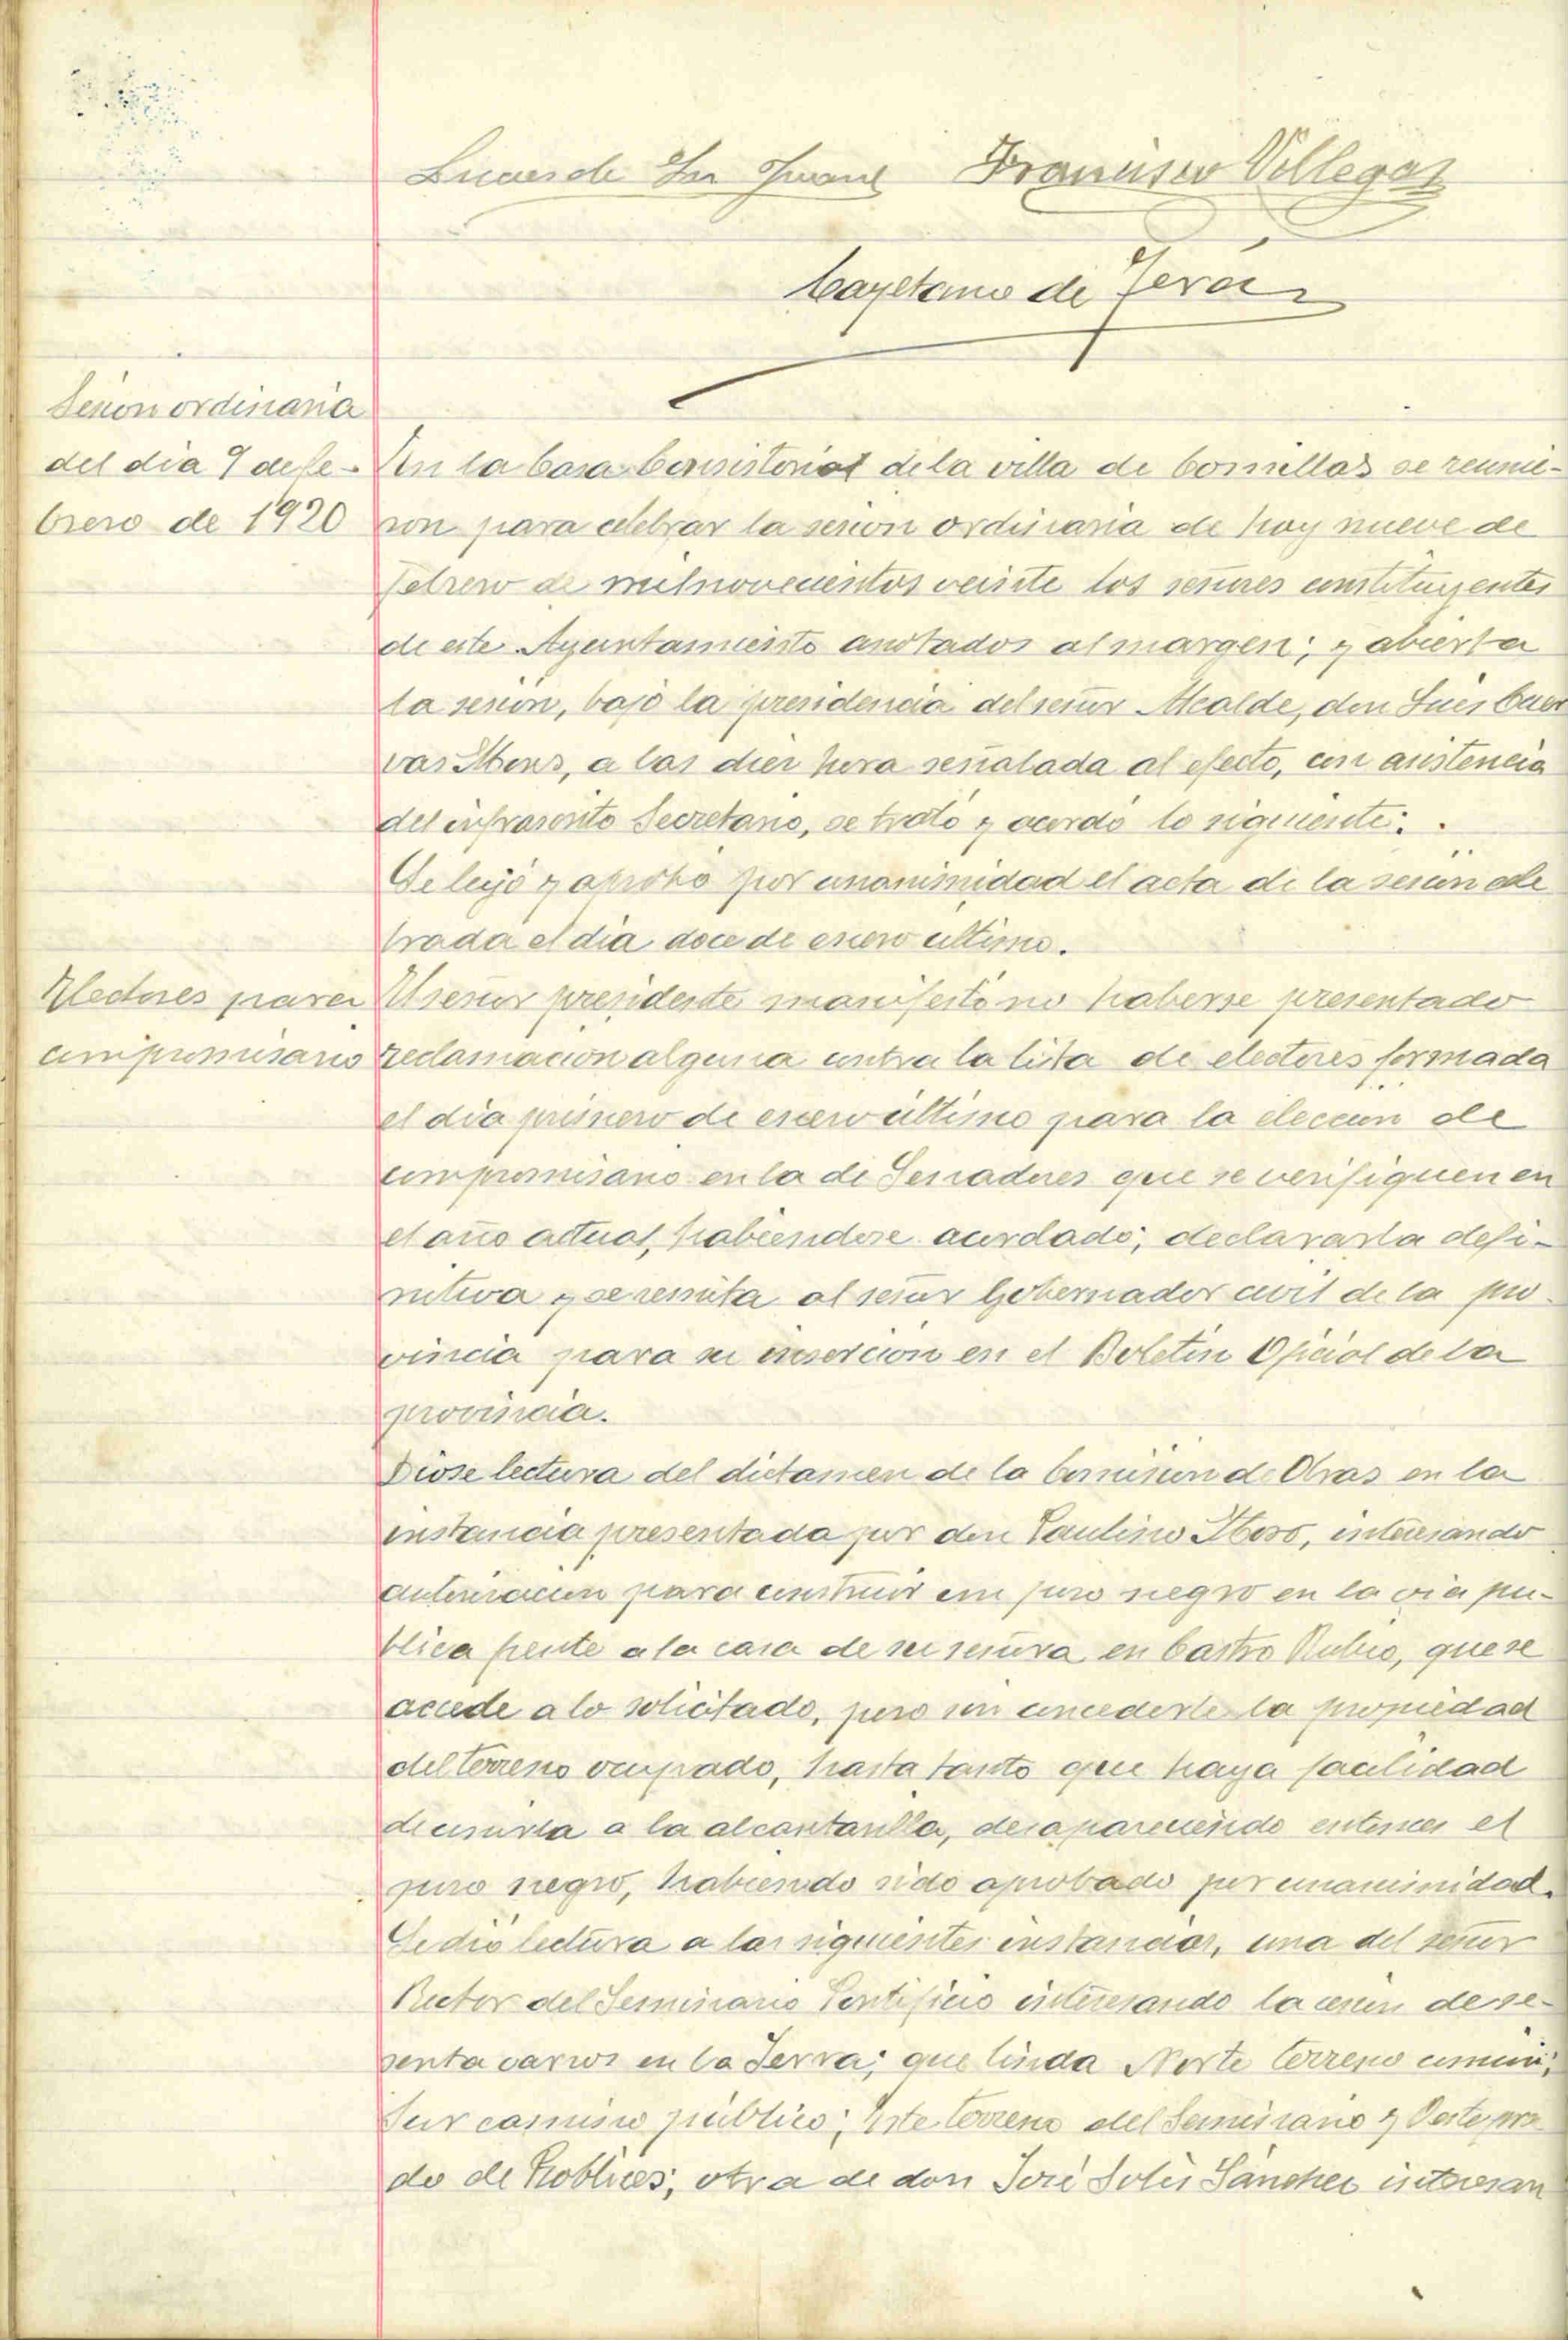 Francisco Villegas
Cayetano de Terán
Sesion ordinaria
del dia 9 de fe-
brero de 1920
En la Casa Consistorial de la villa de Comillas se reunie-
ron para celebrar la sesion ordinaria de hoy nueve de
febrero de mil novecientos veinte los señores constituyentes
de este Ayuntamiento anotados al margen; y abierta
la sesión, bajo la presidencia del señor Alcalde, don Luis Cuer
vas Mons, a las diez hora señalada al efecto, con asistencia
del infrascrito Secretario, se trató y acordó lo siguiente:
Se leyó y aprobó por unanimidad el acta de la sesion cele
brada el dia doce de enero ultimo.
Electores para
compromisario
El señor presidente manifestó no haberse presentado
reclamacion alguna contra la lista de electores formada
el dia primero de enero último para la eleccion de
compromisario en la de Senadores que se verifiquen en
el año actual, habiendose acordado, declararla defi-
nitiva y se remita al señor Gobernador civil de la pro-
vincia para su insercion en el Boletin Oficial de la
provincia.
Diose lectura del dictamen de la Comision de Obras en la
instancia presentada por don Paulino, interesando
autorizacion para construir un pozo negro en la via pu-
blica frente a la casa de su señora en Castro Rubio, que se
accede a lo solicitado, pero sin concederle la propiedad
del terreno ocupado, hasta tanto que haya facilidad
de unirla a la alcantarilla, desapareciendo entonces el
pozo negro, habiendo sido aprobado por unanimidad.
Se dió lectura a las siguientes instancias, una del señor
Rector del Seminario Pontificio interesando la cesion de se-
senta carros en la Serra; que linda Norte terreno comun;
Sur camino público; Este terreno del Seminario y Oeste pra
do de Robles; otra de don José Solis Sánchez interesan